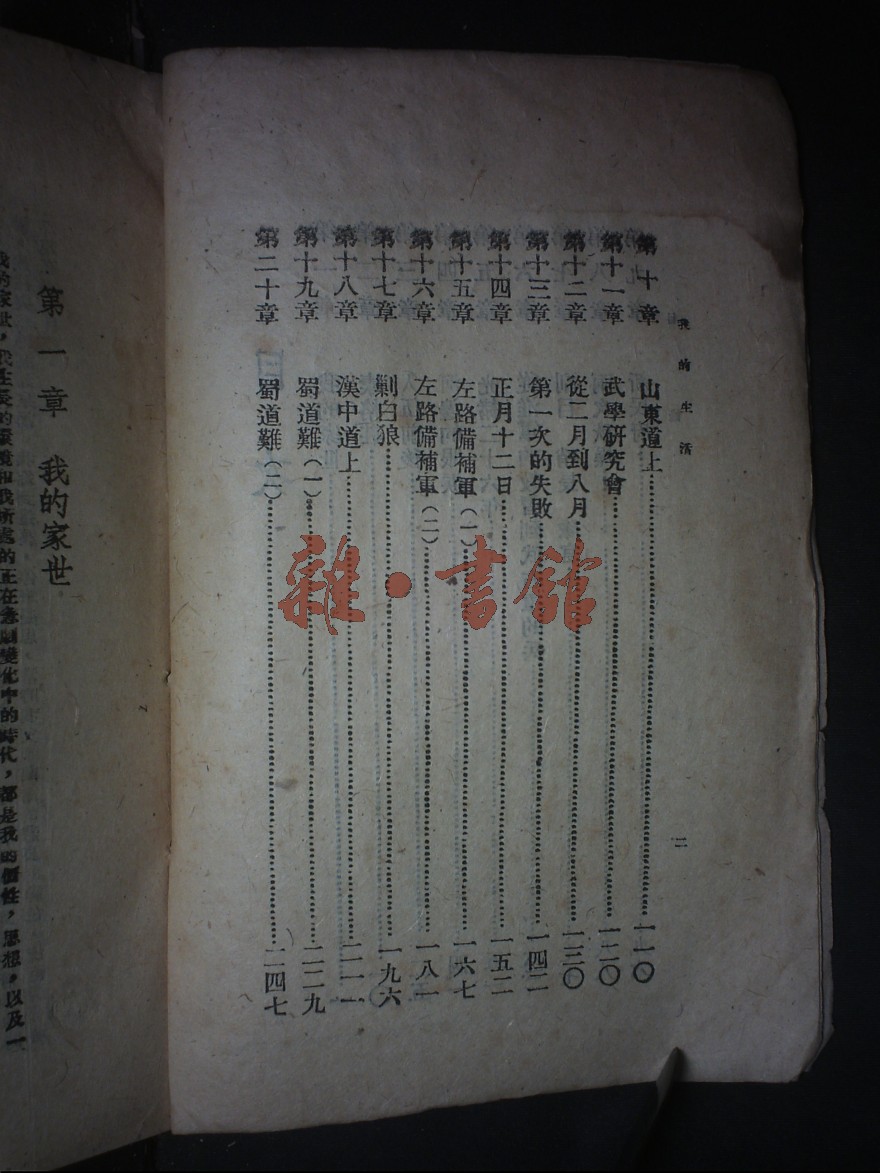 我的生活
第十章 山東道上 一一〇
第十一章 武學研究會 一二〇
第十二章 從二月到八月 一三〇
第十三章 第一次的失敗 一四二
第十四章 正月十二日 一五二
第十五章 左路備補軍（一） 一六七
第十六章 左路備補軍（二） 一八一
第十七章 剿白狼 一九六
第十八章 漢中道上 二一一
第十九章 蜀道難（一） 二二九
第二十章 蜀道難（二） 二四七
二
雜·書館
第一章 我的家世
我的家世，我生長的環境和我所處的正在急劇變化中的時代，都是我的個性，思想，以及一